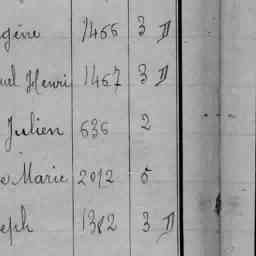 gène 1466 3 D
uel Henri 1467 3 D
Julien 636 2
e Marie 2012 5
eph 1382 3 D